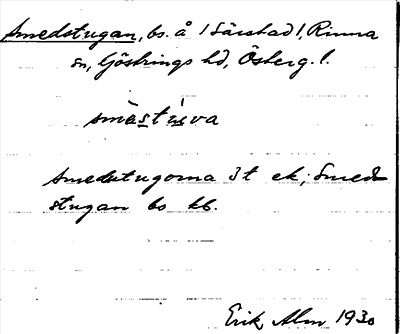 Smedstugan, bs. å /Särstad/, Rinna
sn, Göstrings hd, Österg. l.
smästúva
Smedstugorna 3t ek; Smed-
stugan bs kb.
Erik Alm 1930